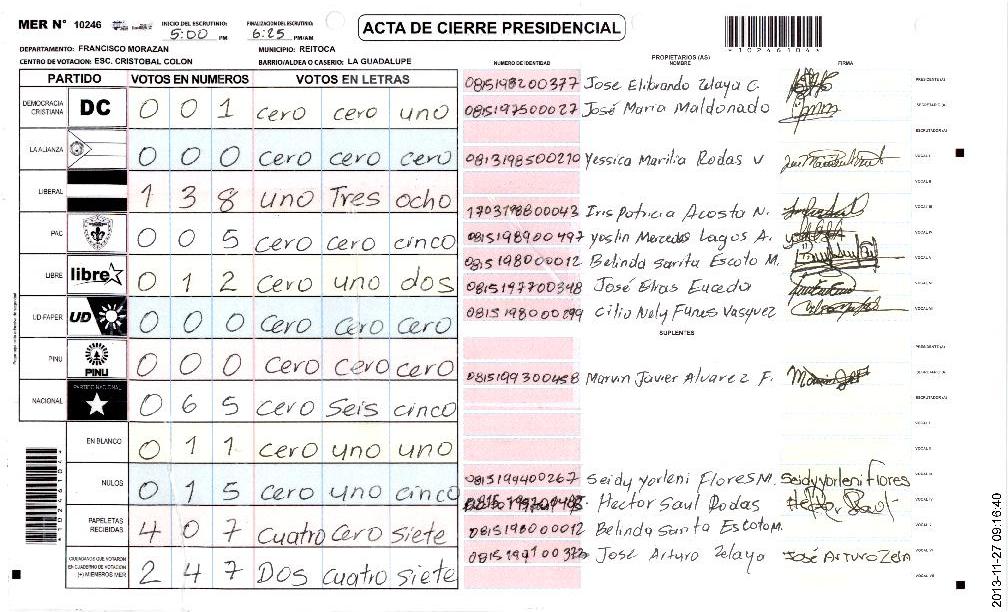 MER N° 10246 INICIO DEL ESCRUTINIO: 5:00 PM FINALIZACION DEL ESCRUTINIO: 6:25 PM/AM
ACTA DE CIERRE PRESIDENCIAL
10246104
DEPARTAMENTO: FRANCISCO MORAZAN MUNICIPIO: REITOCA
CENTRO DE VOTACION: ESC. CRISTOBAL COLON BARRIO/ALDEA O CASERIO: LA GUADALUPE
PARTIDO VOTOS EN NUMEROS VOTOS EN LETRAS
DEMOCRACIA CRISTIANA DC 0 0 1 cero cero uno
LA ALIANZA 0 0 0 cero cero cero
LIBERAL 1 3 8 uno Tres ocho
PAC 0 0 5 cero cero cinco
LIBRE libre 0 1 2 cero uno dos
UD FAPER UD 0 0 0 cero cero cero
PINU PINU 0 0 0 cero cero cero
NACIONAL PARTIDO NACIONAL 0 6 5 cero Seis cinco
EN BLANCO 0 1 1 cero uno uno
NULOS 0 1 5 cero uno cinco
PAPELETAS RECIBIDAS 4 0 7 cuatro cero siete
CIUDADANOS QUE VOTARON EN CUADERNO DE VOTACION (+) MIEMBROS MER 2 4 7 DOS cuatro siete
NUMERO DE IDENTIDAD PROPIETARIOS (AS) NOMBRE FIRMA
0815198200377 Jose Elibrando Zelaya C. PRESIDENTE(A)
0815197500027 José Maria Maldonado SECRETARIO (A)
ESCRUTADOR (A)
0813198500210 Yessica Marilia Rodas V VOCAL I
VOCAL II
1703198800043 Iris Patricia Acosta N. VOCAL III
0815198900497 Yoslin Mercedes Lagos A. VOCAL IV
0815198000012 Belinda Sarita Escoto M. VOCAL V
0815197700348 José Elias Euceda VOCAL VI
0815198000299 Cilio Nely Funes Vasquez VOCAL VII
SUPLENTES
PRESIDENTE(A)
0815199300458 Marvin Javier Alvarez F. SECRETARIO (A)
ESCRUTADOR (A)
VOCAL I
VOCAL II
0815199400267 Seidy Yorleni Flores M. Seidy Yorleni flores VOCAL III
Hector Saul Rodas Hector Saul VOCAL IV
0815198000012 Belinda Sarita Escoto M. VOCAL V
José Arturo Zelaya José Arturo Zela VOCAL VI
VOCAL VII
10246104
2013-11-27 09:16:40